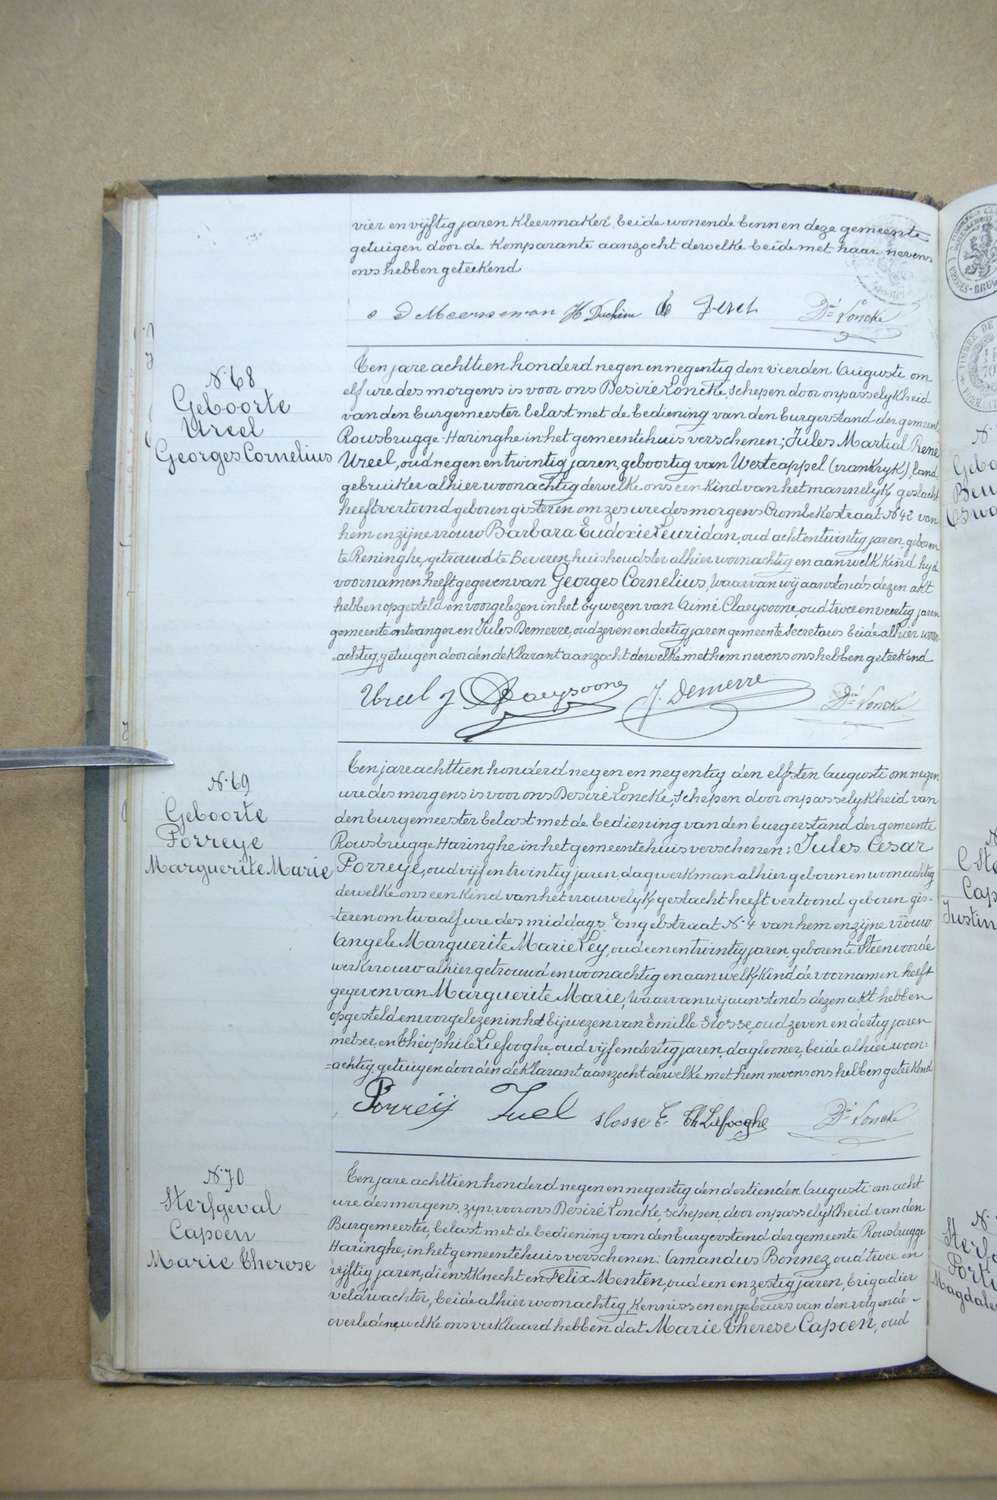 vier en vijftig jaren Kleermaker beide wonende binnen deze gemeente
getuigen door de Komparante aanzocht dewelke beide met haar nevens
ons hebben geteekend
Dré Loncke
N. 68
Geboorte
Ureel
Georges Cornelius
Ten jare achttien honderd negen en negentig den vierden Augusti om
elf ure des morgens is voor ons Desiré Loncke, schepen door onpasselykheid
van den burgemeester belast met de bediening van den burgerstand der gemeent
Rousbrugge-Haringhe in het gemeentehuis verschenen; Jules Martial René
Ureel, oud negen en twintig jaren, geboortig van Westcappel (vrankryk), land
gebruiker alhier woonachtig dewelke ons een kind van het mannelyk geslacht
heeft vertoond geboren gisteren om zes ure des morgens Crombekestraat N. 42 van
hem en zijne vrouw Barbara Eudoxie Leuridan, oud acht en twintig jaren, geboren
te Reninghe, getrouwd te Beveren, huishoudster alhier woonachtig en aan welk kind hy de
voornamen heeft gegeven van Georges Cornelius, waarvan wij aanstonds dezen akt
hebben opgesteld en voorgelezen in het bywezen van Aimé Claeysoone oud twee en veertig jaren
gemeente ontvanger en Jules Demerre, oud zeven en dertig jaren gemeente secretaris beide alhier woon
achtig, getuigen door den deklarant aanzocht dewelke met hem nevens ons hebben geteekend
Ureel J Claeysoone J. Demerre Dré Loncke
N. 69
Geboorte
Porreye
Marguerite Marie
Ten jare achttien honderd negen en negentig den elfsten Augusti om negen
ure des morgens is voor ons Desiré Loncke, schepen door onpasselykheid van
den burgemeester belast met de bediening van den burgerstand der gemeente
Rousbrugge Haringhe in het gemeentehuis verschenen: Jules Cesar
Porreye, oud vijf en twintig jaren, dagwerkman alhier geboren en woonachtig
dewelke ons een kind van het vrouwelyk geslacht heeft vertoond geboren gis-
=teren om twaalf ure des middags Engelstraat N. 4 van hem en zijne vrouw
Angele Marguerite Marie Ley, oud een en twintig jaren, geboren te Steenvoorde
werkvrouw alhier getrouwd en woonachtig en aan welk kind de voornamen heeft
gegeven van Marguerite Marie, waarvan wij aanstonds dezen akt hebben
opgesteld en voorgelezen in het bijwezen van Emille Slosse, oud zeven en dertig jaren
metser, en Théophile Liefooghe, oud vijf en dertig jaren, daglooner, beide alhier woon=
=achtig, getuigen door den deklarant aanzocht dewelke met hem nevens ons hebben geteekend
Porreij Juel Slosse E. Th Liefooghe Dré Loncke
N. 70
Sterfgeval
Capoen
Marie Therese
Ten jare achttien honderd negen en negentig den dertienden Augusti om acht
ure des morgens, zyn voor ons Desiré Loncke, schepen, door onpasselykheid van den
Burgemeester, belast met de bediening van den burgerstand der gemeente Rousbrugge
Haringhe, in het gemeentehuis verschenen: Amandus Bonnez, oud twee en
vijftig jaren, dienstknecht en Felix Monten, oud een en zestig jaren, brigadier
veldwachter, beide alhier woonachtig, kennissen en gebeurs van den volgende
overledene, welke ons verklaard hebben dat Marie Therese Capoen, oud